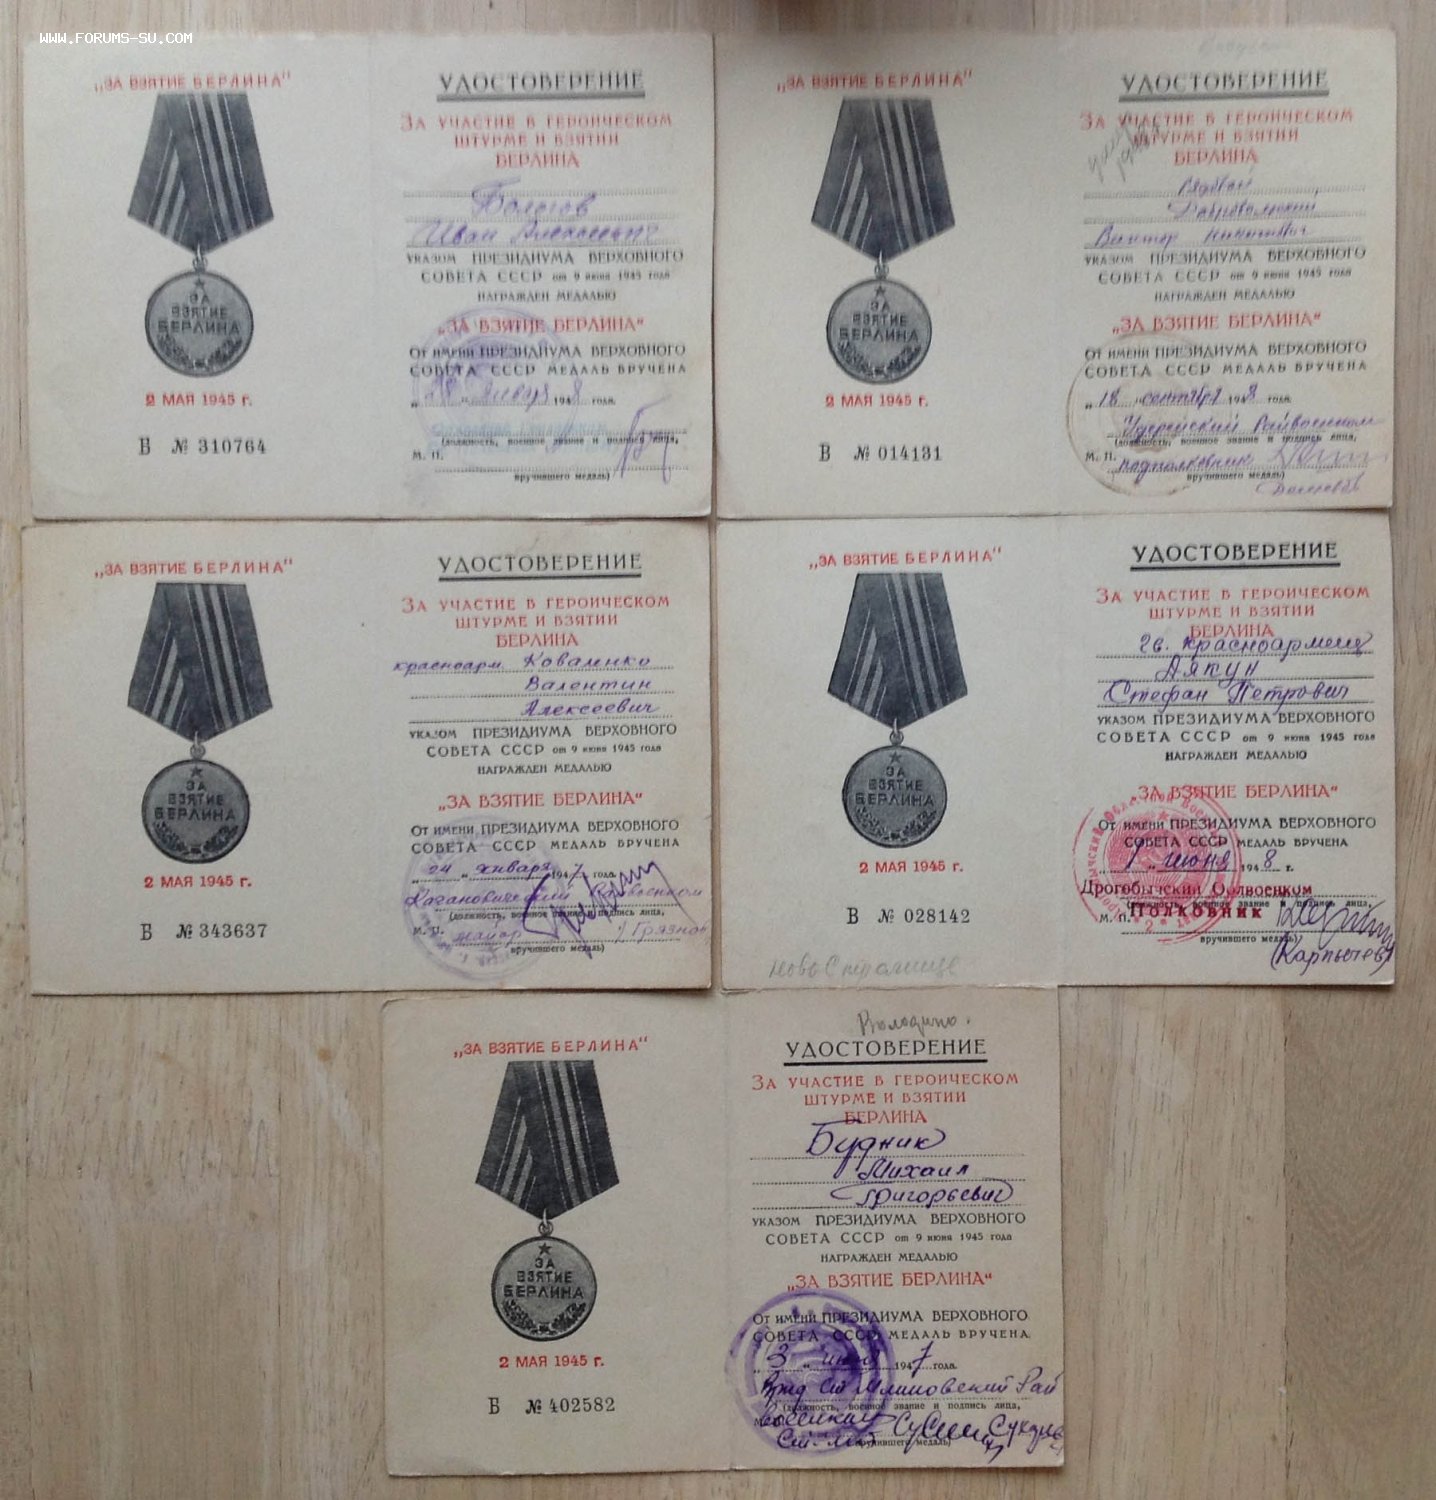 WWW.FORUMS-SU.COM
„ЗА ВЗЯТИЕ БЕРЛИНА"
ЗА
ВЗЯТИЕ
БЕРЛИНА
2 МАЯ 1945 г.
Б № 310764
УДОСТОВЕРЕНИЕ
ЗА УЧАСТИЕ В ГЕРОИЧЕСКОМ
ШТУРМЕ И ВЗЯТИИ
БЕРЛИНА
Иван Алексеевич
УКАЗОМ ПРЕЗИДИУМА ВЕРХОВНОГО
СОВЕТА СССР от 9 июня 1945 года
НАГРАЖДЕН МЕДАЛЬЮ
„ЗА ВЗЯТИЕ БЕРЛИНА"
От имени ПРЕЗИДИУМА ВЕРХОВНОГО
СОВЕТА СССР МЕДАЛЬ ВРУЧЕНА
января 1948 года.
(должность, военное звание и подпись лица,
М. П.
вручившего медаль)
„ЗА ВЗЯТИЕ БЕРЛИНА"
ЗА
ВЗЯТИЕ
БЕРЛИНА
2 МАЯ 1945 г.
В № 014131
УДОСТОВЕРЕНИЕ
ЗА УЧАСТИЕ В ГЕРОИЧЕСКОМ
ШТУРМЕ И ВЗЯТИИ
БЕРЛИНА
Рядовой
Добровольский
Виктор Никитович
УКАЗОМ ПРЕЗИДИУМА ВЕРХОВНОГО
СОВЕТА СССР от 9 июня 1945 года
НАГРАЖДЕН МЕДАЛЬЮ
„ЗА ВЗЯТИЕ БЕРЛИНА"
От имени ПРЕЗИДИУМА ВЕРХОВНОГО
СОВЕТА СССР МЕДАЛЬ ВРУЧЕНА
„18 " сентября 1948 года.
Удерейский Райвоенком
(должность, военное звание и подпись лица,
М. П. подполковник
вручившего медаль)
„ЗА ВЗЯТИЕ БЕРЛИНА"
ЗА
ВЗЯТИЕ
БЕРЛИНА
2 МАЯ 1945 г.
Б № 343637
УДОСТОВЕРЕНИЕ
ЗА УЧАСТИЕ В ГЕРОИЧЕСКОМ
ШТУРМЕ И ВЗЯТИИ
БЕРЛИНА
красноарм. Коваленко
Валентин
Алексеевич
УКАЗОМ ПРЕЗИДИУМА ВЕРХОВНОГО
СОВЕТА СССР от 9 июня 1945 года
НАГРАЖДЕН МЕДАЛЬЮ
„ЗА ВЗЯТИЕ БЕРЛИНА"
От имени ПРЕЗИДИУМА ВЕРХОВНОГО
СОВЕТА СССР МЕДАЛЬ ВРУЧЕНА
„ 24 " января 1947 года.
Кагановический Райвоенком
(должность, военное звание и подпись лица,
М. П. майор
вручившего медаль)
„ЗА ВЗЯТИЕ БЕРЛИНА"
ЗА
ВЗЯТИЕ
БЕРЛИНА
2 МАЯ 1945 г.
В № 028142
УДОСТОВЕРЕНИЕ
ЗА УЧАСТИЕ В ГЕРОИЧЕСКОМ
ШТУРМЕ И ВЗЯТИИ
БЕРЛИНА
гв. красноармеец
Дякун
Стефан Петрович
УКАЗОМ ПРЕЗИДИУМА ВЕРХОВНОГО
СОВЕТА СССР от 9 июня 1945 года
НАГРАЖДЕН МЕДАЛЬЮ
„ЗА ВЗЯТИЕ БЕРЛИНА"
От имени ПРЕЗИДИУМА ВЕРХОВНОГО
СОВЕТА СССР МЕДАЛЬ ВРУЧЕНА
1 " июня 1948 г.
Дрогобычский Облвоенком
(должность, военное звание и подпись лица,
М. П. Полковник
вручившего медаль)
„ЗА ВЗЯТИЕ БЕРЛИНА"
ЗА
ВЗЯТИЕ
БЕРЛИНА
2 МАЯ 1945 г.
Б № 402582
Володино.
УДОСТОВЕРЕНИЕ
ЗА УЧАСТИЕ В ГЕРОИЧЕСКОМ
ШТУРМЕ И ВЗЯТИИ
БЕРЛИНА
Будник
Михаил
Григорьевич
УКАЗОМ ПРЕЗИДИУМА ВЕРХОВНОГО
СОВЕТА СССР от 9 июня 1945 года
НАГРАЖДЕН МЕДАЛЬЮ
„ЗА ВЗЯТИЕ БЕРЛИНА"
От имени ПРЕЗИДИУМА ВЕРХОВНОГО
СОВЕТА СССР МЕДАЛЬ ВРУЧЕНА
„ 3 " 1947 года.
Рай
(должность, военное звание и подпись лица,
вручившего медаль)